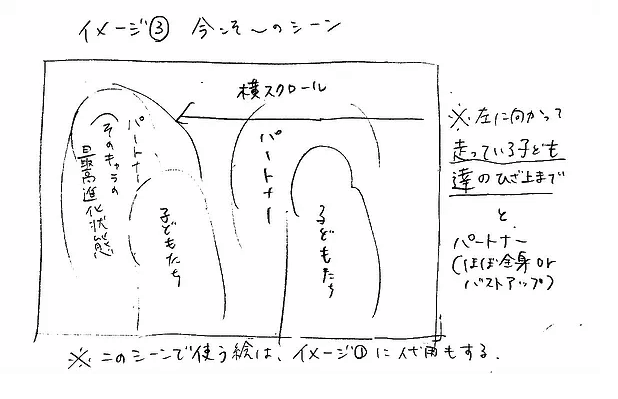 イメージ③ 今こそ〜のシーン
横スクロール
パートナー
そのキャラの
最高進化状態
子どもたち
パートナー
子どもたち
※左に向かって
走っている子ども
達のひざ上まで
と
パートナー
(ほぼ全身or
バストアップ)
※このシーンで使う絵は、イメージ①に代用もする.